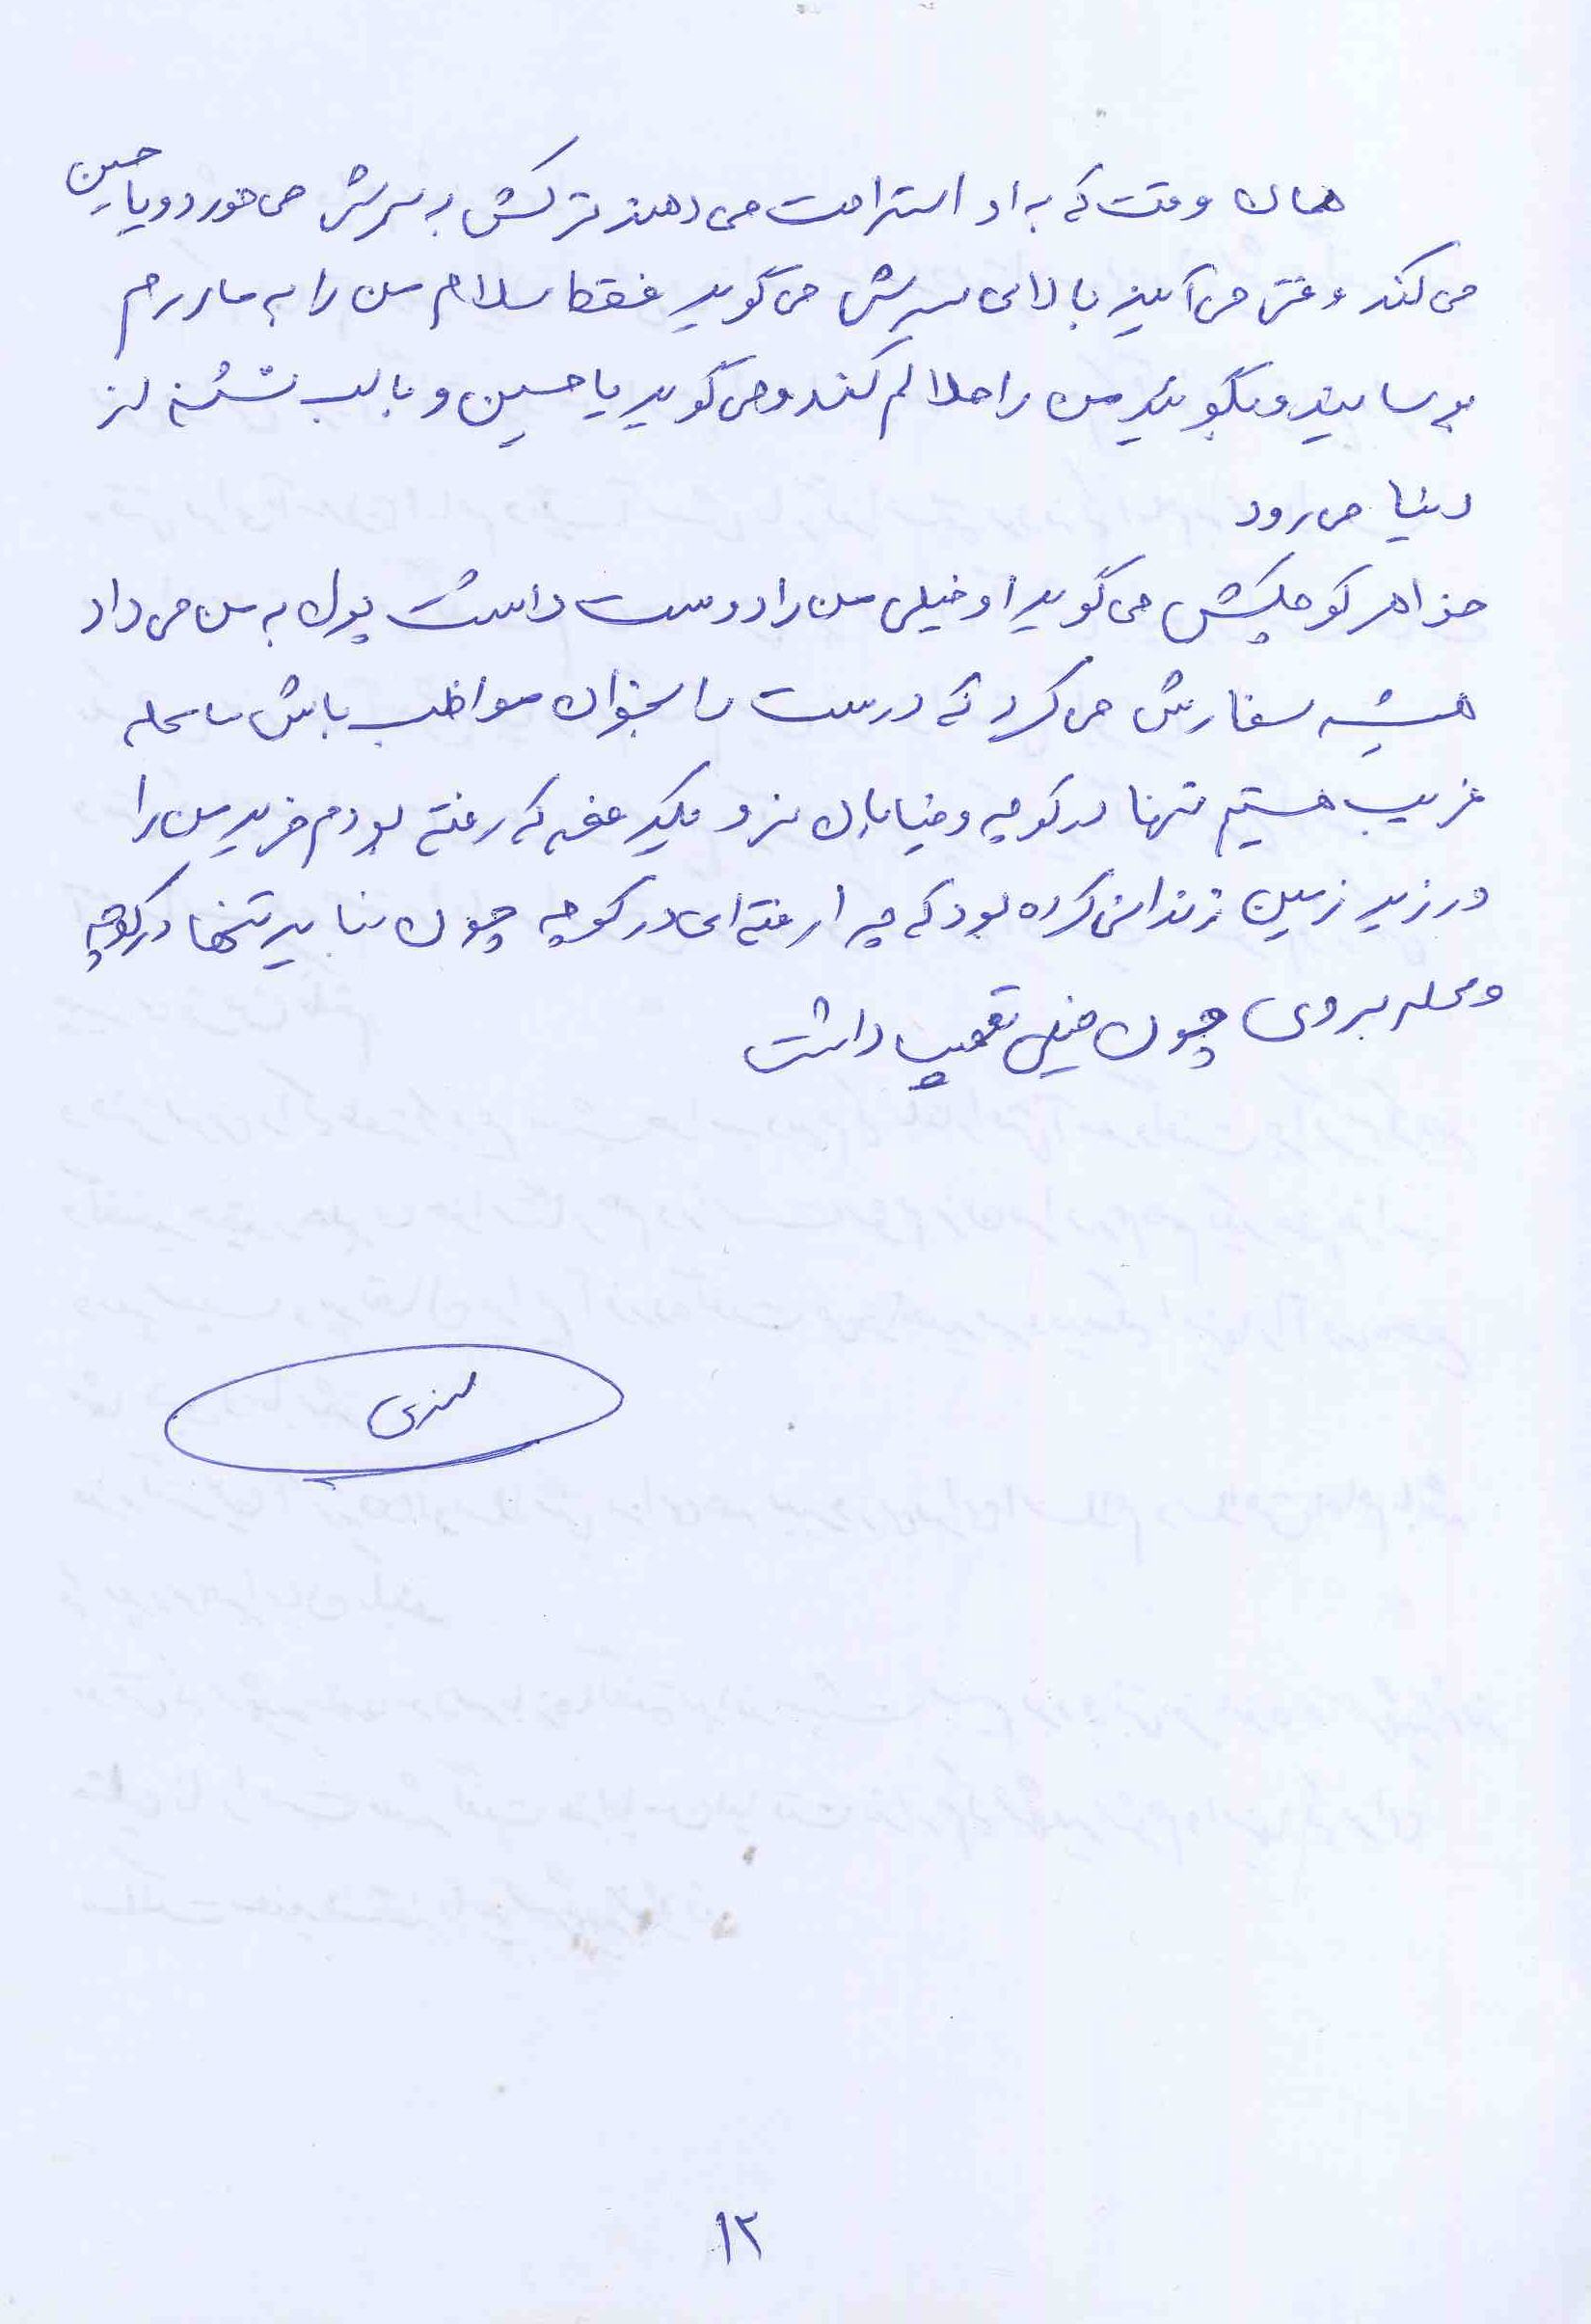 همان وقت که به او استراحت می دهند ترکش به سرش می خورد و یا حسین
می کند وقتی می آیند بالای سرش می گوید فقط سلام من را به مادرم
برسانید و بگوئید من را حلالم کند و می گوید یا حسین و با لب تشنه از
دنیا می رود
خواهر کوچکش می گوید او خیلی من را دوست داشت پول به من می داد
همیشه سفارش می کرد که درست را بخوان مواظب باش ما محله
غریب هستیم تنها در کوچه و خیابان نرو یکدفعه که رفته بودم فرید من را
در زیر زمین زندانی کرده بود که چرا رفته ای در کوچه چون نباید تنها در کوچه
و محله بروی چون خیلی تعصب داشت
۱۲